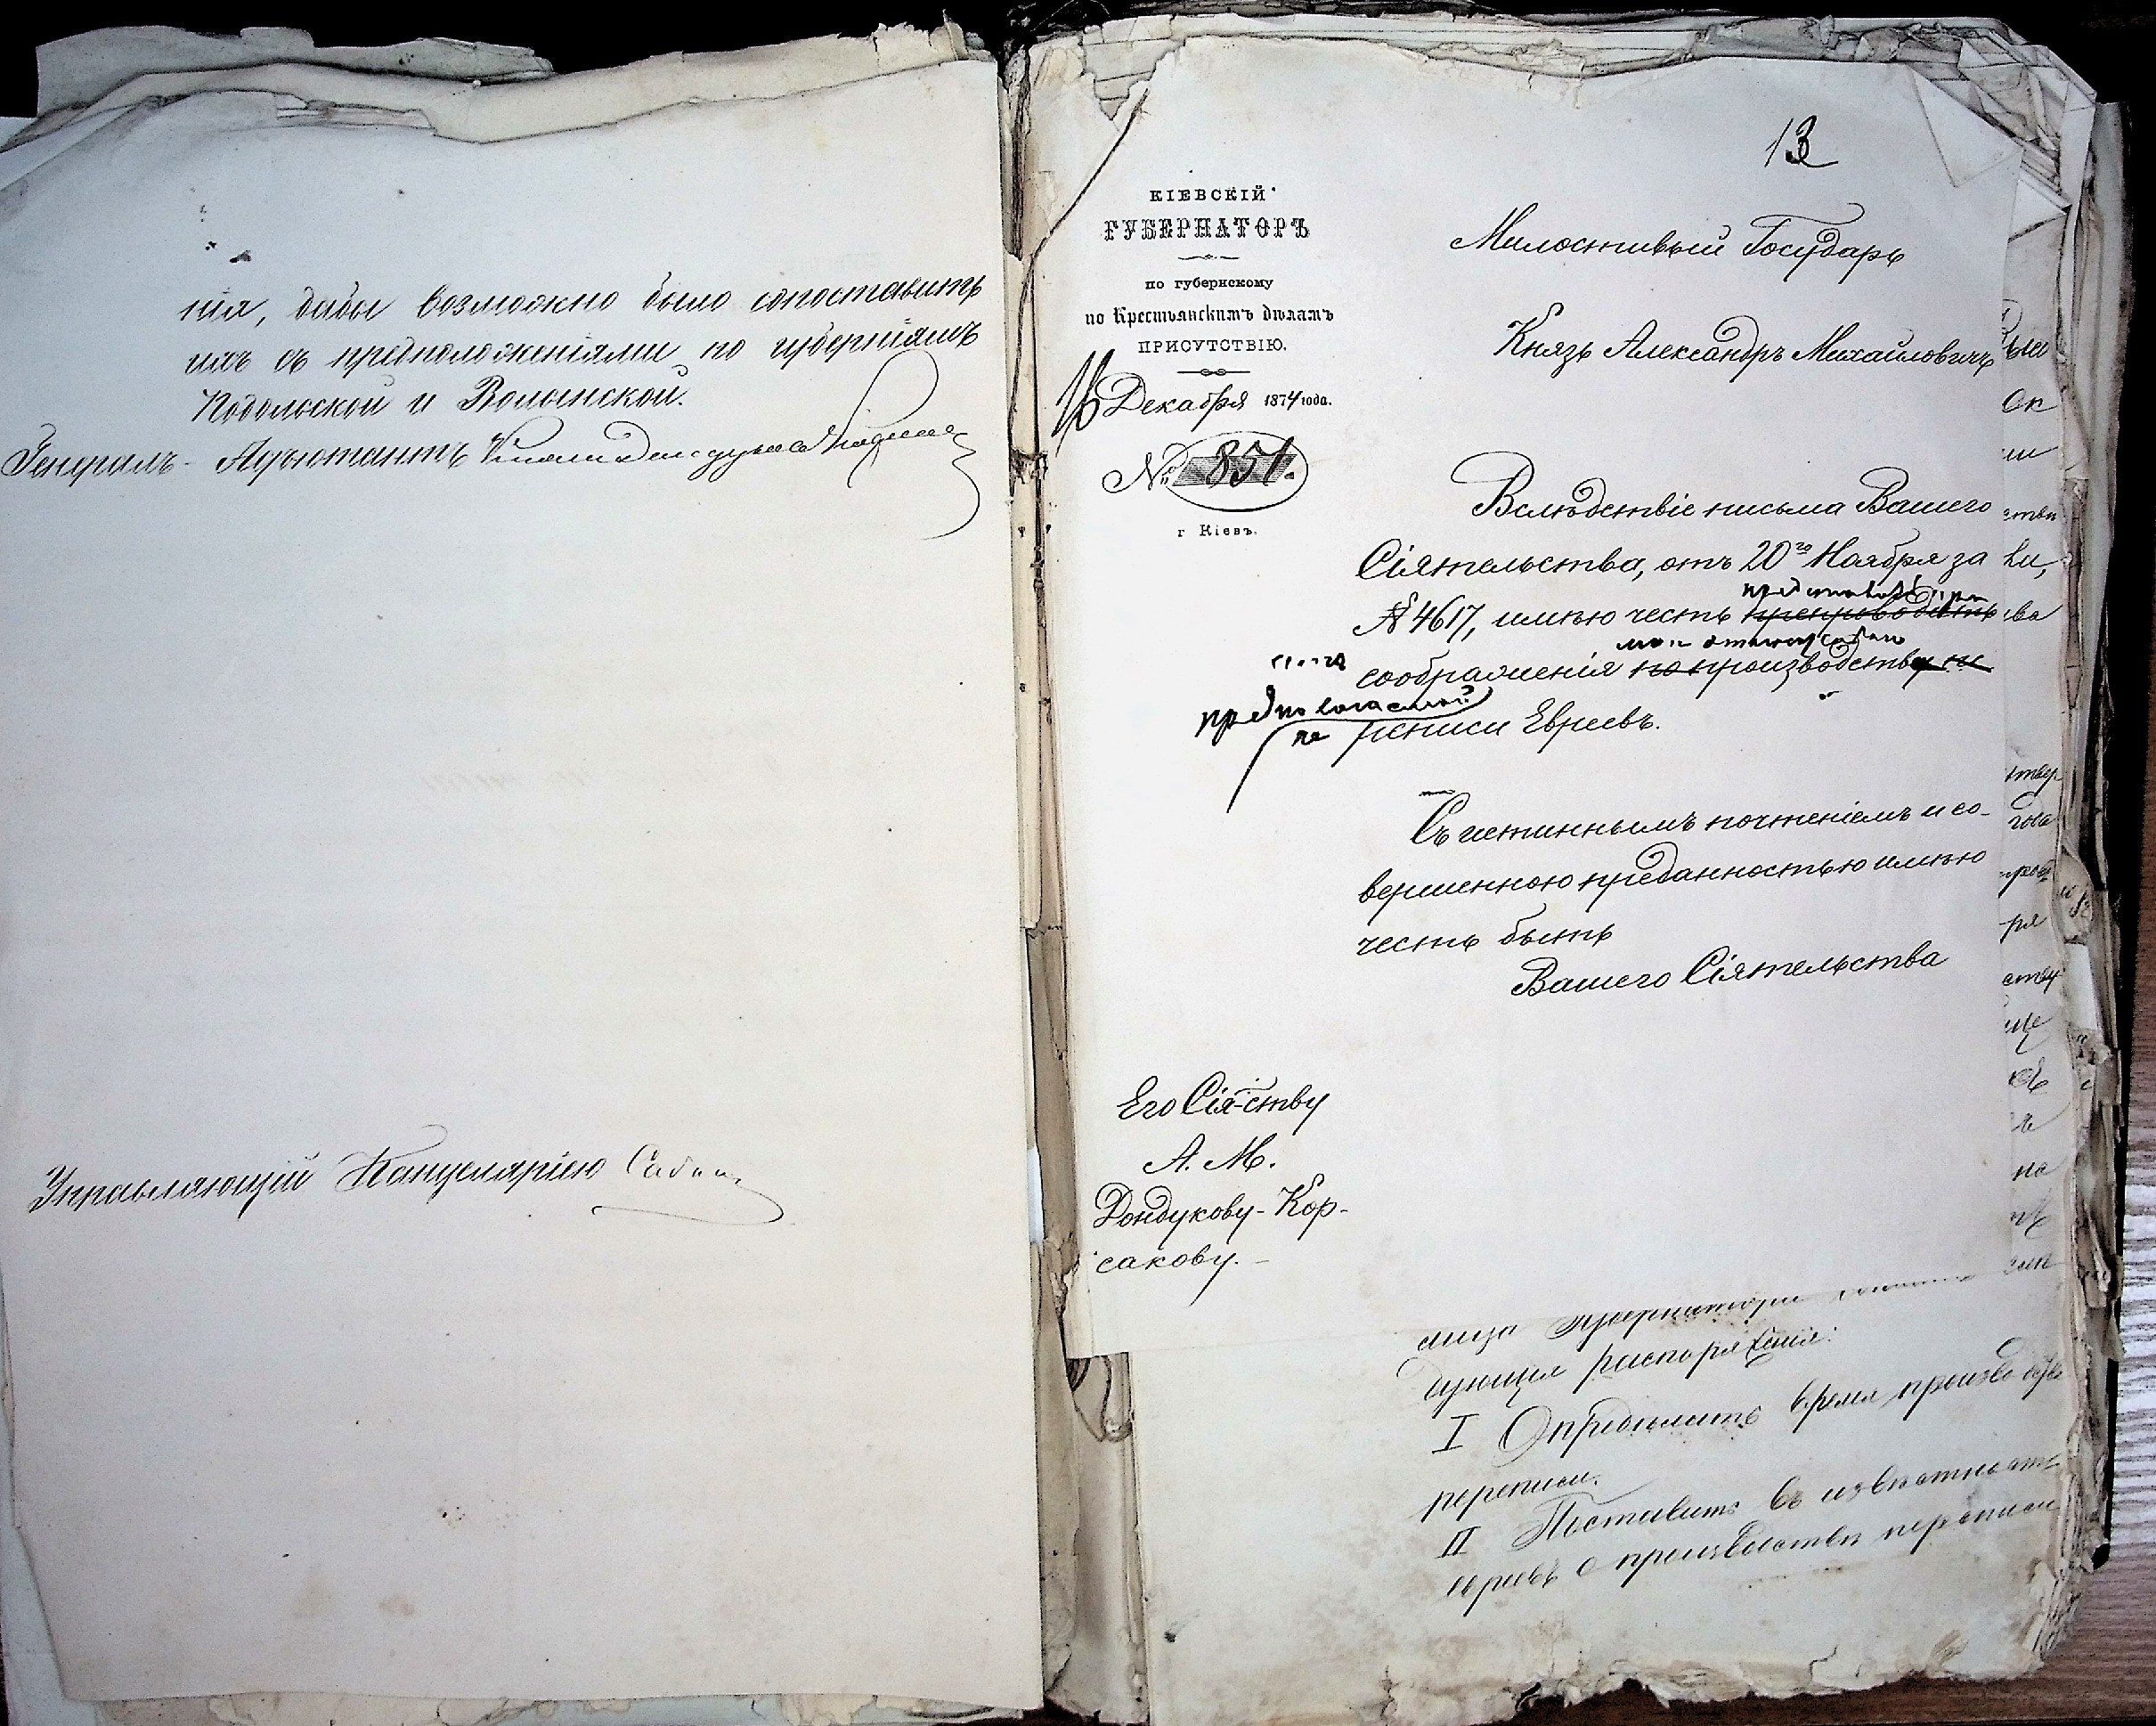 нія, дабы возможно было сопоставить
ихъ съ предположеніями по губерніямъ
Подольской и Волынской.
Генералъ-Адъютантъ Князь Дондуковъ Корсаковъ
Управляющій Канцеляріею
13
КІЕВСКІЙ
ГУБЕРНАТОРЪ
по губернскому
по Крестьянскимъ дѣламъ
ПРИСУТСТВІЮ.
16 Декабря 1874 года.
№ 851.
г Кіевъ.
Милостивый Государь
Князь Александръ Михайловичъ
Вслѣдствіе письма Вашего
Сіятельства, отъ 20го Ноября за
№ 4617, имѣю честь препроводить
соображенія по производству пе
предполагаемой
ре писи Евреевъ.
Съ истиннымъ почтеніемъ и со-
вершенною преданностью имѣю
честь быть
Вашего Сіятельства
Его Сія-ству
А. М.
Дондукову-Кор-
сакову.-
лица Губернаторы
дующія распоряженія:
I Опредѣлить время производства
переписи.
II Поставить въ извѣстность
евреевъ о производствѣ переписи